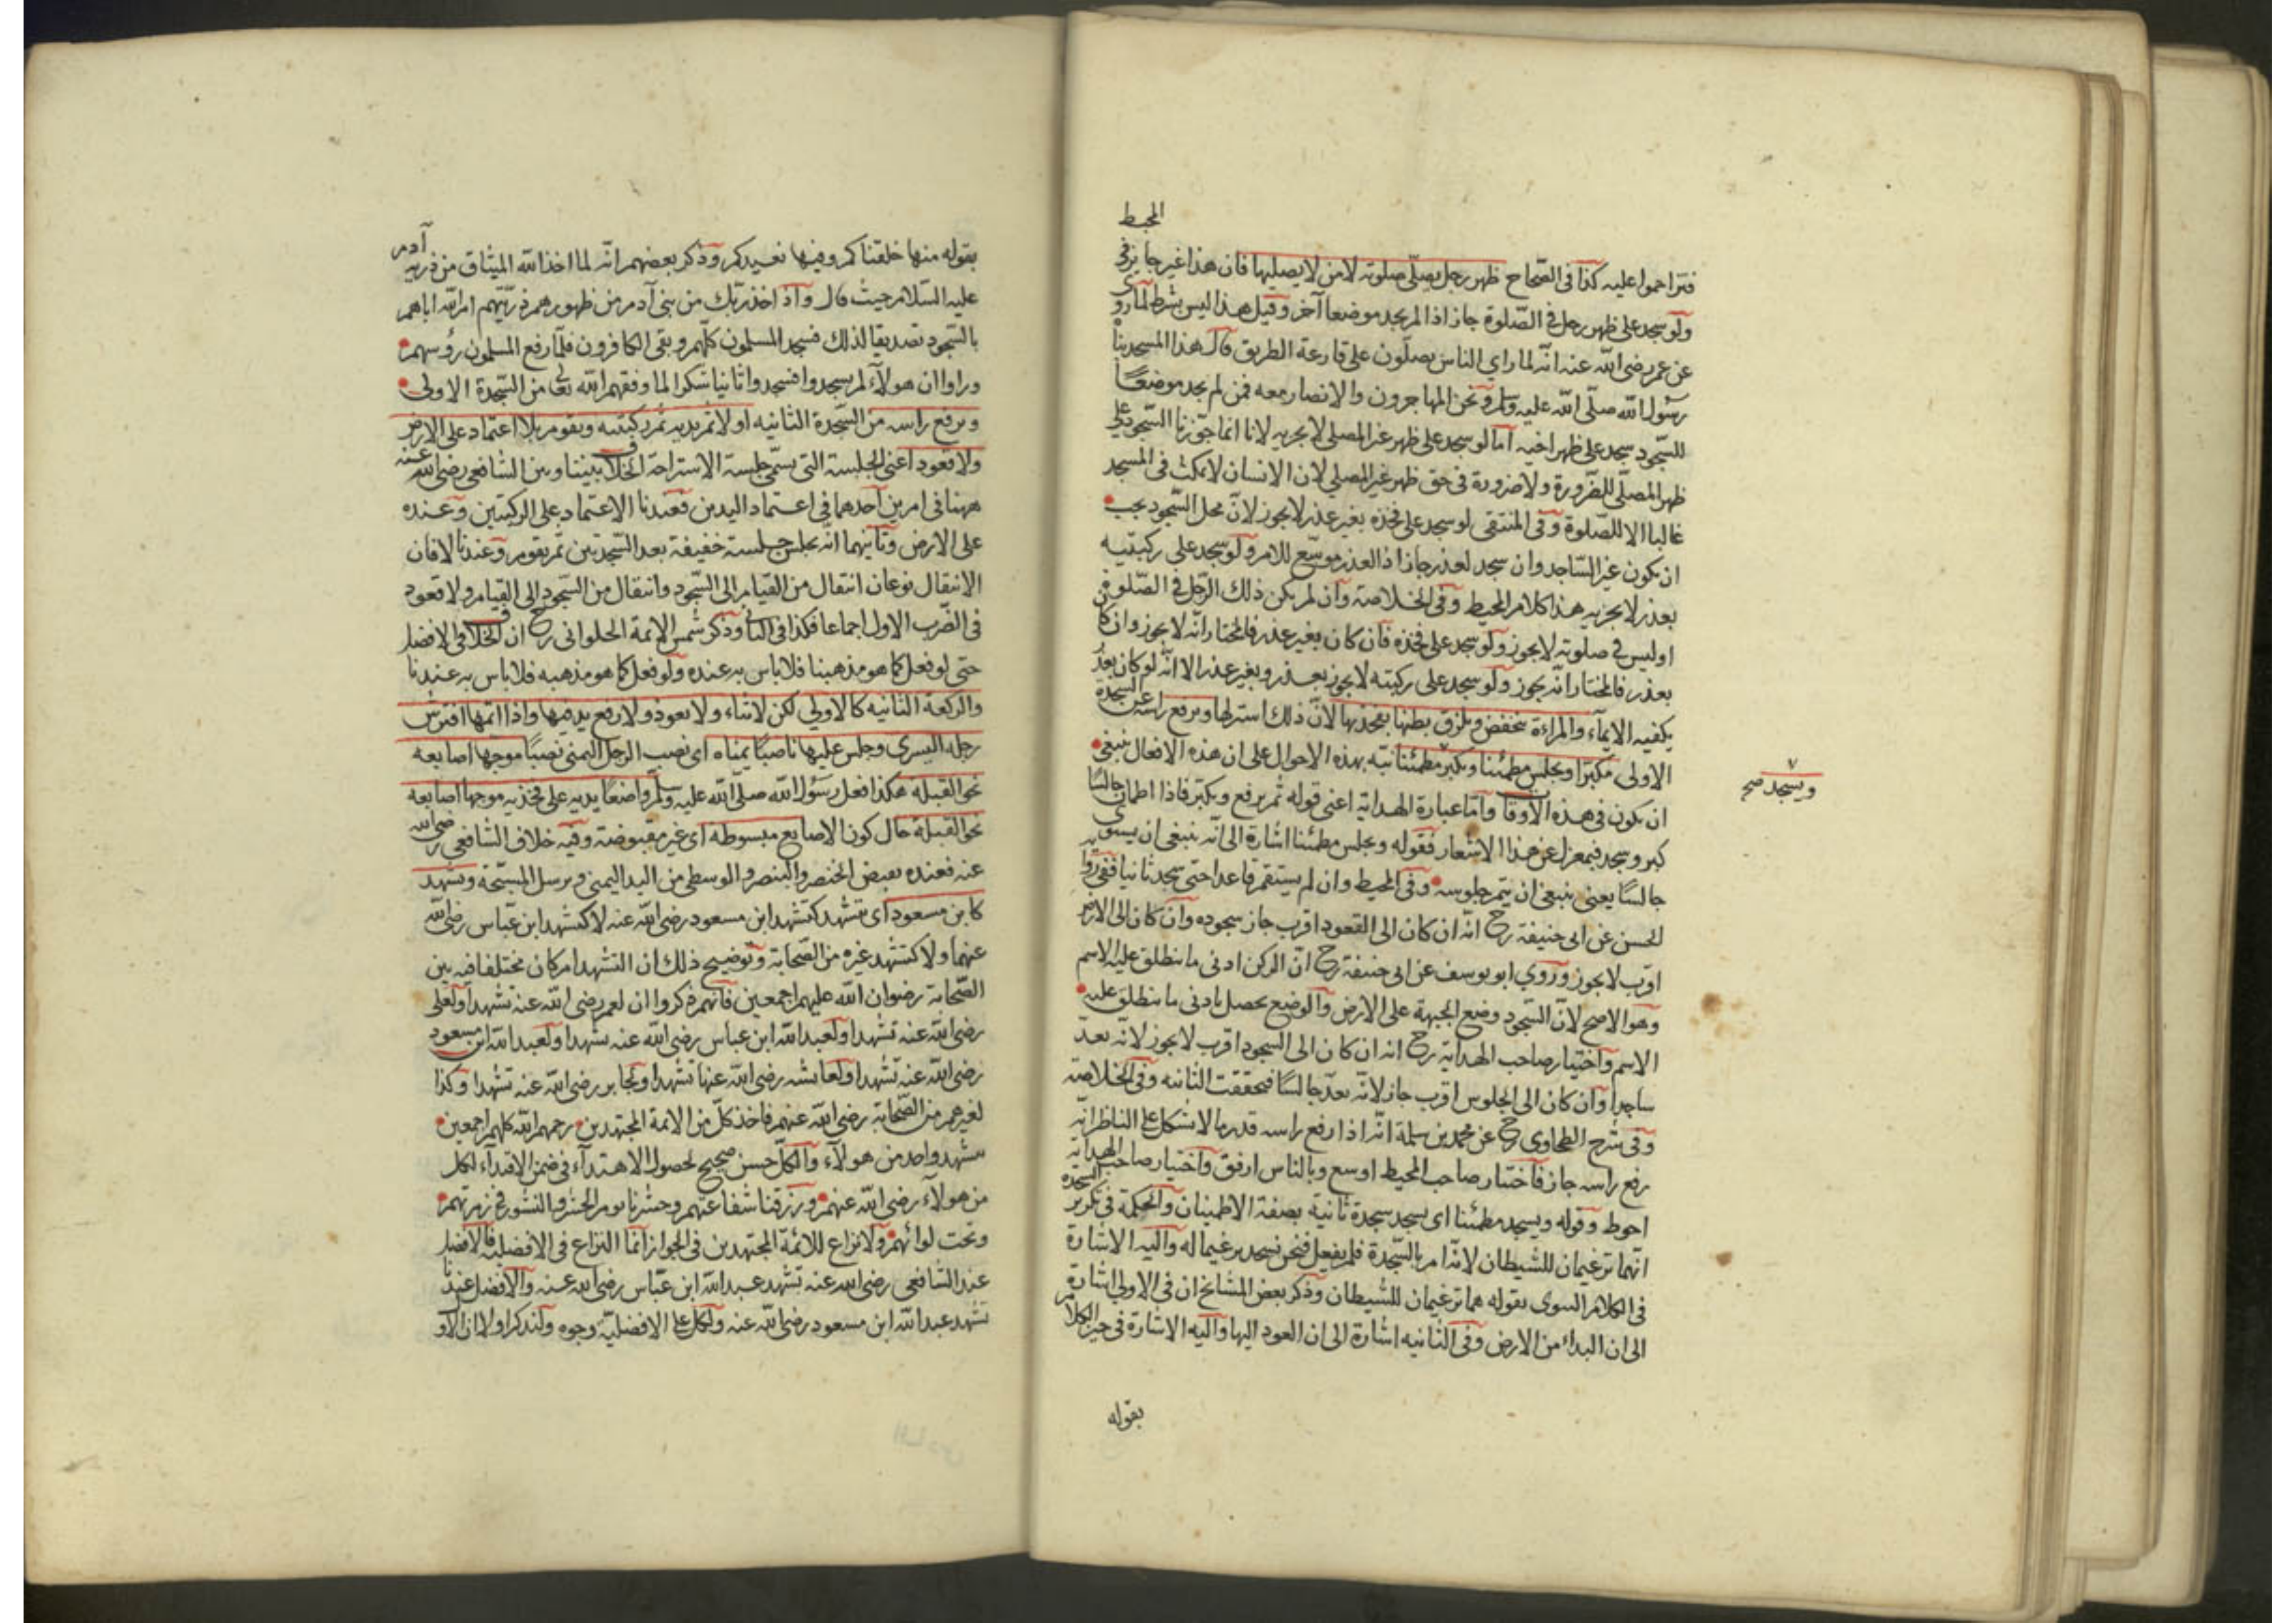 المحيط
فتزاحموا عليه كذا في الصحاح ظهر رجل يصلي صلوته لا من لا يصليها فان هذا غير جايز في
ولو سجد على ظهر رجل في الصلوة جاز اذا لم يجد موضعا آخر وقيل هذا ليس بشرط لما روى
عن عمر رضى الله عنه انه لما راي الناس يصلون على قارعة الطريق قال هذا المسجد بناه
رسول الله صلى الله عليه وسلم ونحن المهاجرون والانصار معه فمن لم يجد موضعا
للسجود سجد على ظهر اخيه اما لو سجد على ظهر غير المصلي لا يجزيه لانا انما جوزنا السجود على
ظهر المصلي للضرورة ولا ضرورة في حق ظهر غير المصلي لان الانسان لا يمكث في المسجد
غالبا الا للصلوة وفي المنتقى لو سجد على فخذه بغير عذر لا يجوز لان محل السجود يجب
ان يكون غير الساجد وان سجد لعذر جاز اذ العذر موسع للامر ولو سجد على ركبتيه
بعذر لا يجزيه هذا كلام المحيط وفي الخلاصة وان لم يكن ذلك الرجل في الصلوة
او ليس في صلوته لا يجوز ولو سجد على فخذه فان كان بغير عذر فالمختار انه لا يجوز وان كان
بعذر فالمختار انه يجوز ولو سجد على ركبتيه لا يجوز بعذر وبغير عذر الا انه لو كان بعذر
يكفيه الايماء والمراءة تنخفض وتلزق بطنها بفخذيها لان ذلك استر لها ويرفع راسه عن السجدة
الاولى مكبرا ويجلس مطمئنا ويكبر مطمئنا نبه بهذه الاحوال على ان هذه الافعال ينبغي
ويسجد صح
ان يكون في هذه الاوقات واما عبارة الهداية اعني قوله ثم يرفع ويكبر فاذا اطمان جالسا
كبر وسجد فبمعزل عن هذا الاشعار فقوله ويجلس مطمئنا اشارة الى انه ينبغي ان يستوي
جالسا يعني ينبغي ان يتم جلوسه وفي المحيط وان لم يستقم قاعدا حتى سجد ثانيا ففي رواية
الحسن عن ابي حنيفة رح انه ان كان الى القعود اقرب جاز سجوده وان كان الى الارض
اقرب لا يجوز وروي ابو يوسف عن ابي حنيفة رح ان الركن ادنى ما ينطلق عليه الاسم
وهو الاصح لان السجود وضع الجبهة على الارض والوضع يحصل بادنى ما ينطلق عليه
الاسم واختيار صاحب الهداية رح انه ان كان الى السجود اقرب لا يجوز لانه يعد
ساجدا وان كان الى الجلوس اقرب جاز لانه يعد جالسا فتحققت الثانيه وفي الخلاصة
وفي شرح الطحاوي رح عن محمد بن سلمة انه اذا رفع راسه قدر ما لا يشكل على الناظر انه
رفع راسه جاز فاختار صاحب المحيط اوسع وبالناس ارفق واختيار صاحب الهداية
احوط وقوله ويسجد مطمئنا اى يسجد سجدة ثانية بصفة الاطمينان والحكمة في تكرير السجدة
انهما ترغيمان للشيطان لانه امر بالسجدة فلم يفعل فنحن نسجد ترغيما له واليه الاشارة
في الكلام النبوى بقوله هما ترغيمان للشيطان وذكر بعض المشايخ ان في الاولى اشارة
الى ان البداء من الارض وفي الثانيه اشارة الى ان العود اليها واليه الاشارة في خير الكلام
بقوله
بقوله منها خلقناكم وفيها نعيدكم وذكر بعضهم انه لما اخذ الله الميثاق من ذرية آدم
عليه السلام حيث قال واذ اخذ ربك من بنى آدم من ظهورهم ذريتهم امر الله اياهم
بالسجود تصديقا لذلك فسجد المسلمون كلهم وبقى الكافرون فلما رفع المسلمون رؤسهم
وراوا ان هولاء لم يسجدوا فسجدوا ثانيا شكرا لما وفقهم الله تعالى من السجدة الاولى
ويرفع راسه من السجدة الثانيه اولا ثم يديه ثم ركبتيه ويقوم بلا اعتماد على الارض
ولا قعود اعنى الجلسة التى يسمى جلسة الاستراحة الخلاف بيننا وبين الشافعي رضى الله عنه
ههنا في امرين احدهما في اعتماد اليدين فعندنا الاعتماد على الركبتين وعنده
على الارض وثانيهما انه يجلس جلسة خفيفة بعد السجدتين ثم يقوم وعندنا لا فان
الانتقال نوعان انتقال من القيام الى السجود وانتقال من السجود الى القيام ولا قعود
في الضرب الاول اجماعا فكذا في الثاني وذكر شمس الائمة الحلواني رح ان الخلاف في الافضل
حتى لو فعل كما هو مذهبنا فلا باس به عنده ولو فعل كما هو مذهبه فلا باس به عندنا
والركعة الثانيه كالاولى لكن لا ثناء ولا تعوذ ولا رفع يد فيها واذا اتمها افترش
رجله اليسرى وجلس عليها ناصبا يمناه اى نصب الرجل اليمنى نصبا موجها اصابعه
نحو القبلة هكذا فعل رسول الله صلى الله عليه وسلم واضعا يديه على فخذيه موجها اصابعه
نحو القبلة حال كون الاصابع مبسوطة اى غير مقبوضة وفيه خلاف الشافعي رضى الله
عنه فعنده يقبض الخنصر والبنصر والوسطى من اليد اليمنى ويرسل المسبحة ويتشهد
كابن مسعود اى يتشهد كتشهد ابن مسعود رضى الله عنه لا كتشهد ابن عباس رضى الله
عنهما ولا كتشهد غيره من الصحابة وتوضيح ذلك ان التشهد امر كان مختلفا فيه بين
الصحابة رضوان الله عليهم اجمعين فانهم ذكروا ان لعمر رضى الله عنه تشهدا ولعلي
رضى الله عنه تشهدا ولعبد الله ابن عباس رضى الله عنه تشهدا ولعبد الله ابن مسعود
رضى الله عنه تشهدا ولعائشه رضى الله عنها تشهدا ولجابر رضى الله عنه تشهدا وكذا
لغيرهم من الصحابة رضى الله عنهم فاخذ كل من الائمة المجتهدين رحمهم الله كلهم اجمعين
بتشهد واحد من هولاء والكل حسن صحيح لحصول الاهتداء في ضمن الاقتداء لكل
من هولاء رضى الله عنهم ورزقنا شفاعتهم وحشرنا يوم الحشر والنشور في زمرتهم
وتحت لوائهم ولا نزاع للائمة المجتهدين في الجواز انما النزاع في الافضلية فالافضل
عند الشافعي رضى الله عنه تشهد عبد الله ابن عباس رضى الله عنه والافضل عندنا
تشهد عبد الله ابن مسعود رضى الله عنه ولكل على الافضلية وجوه ولنذكر اولا ان الاو